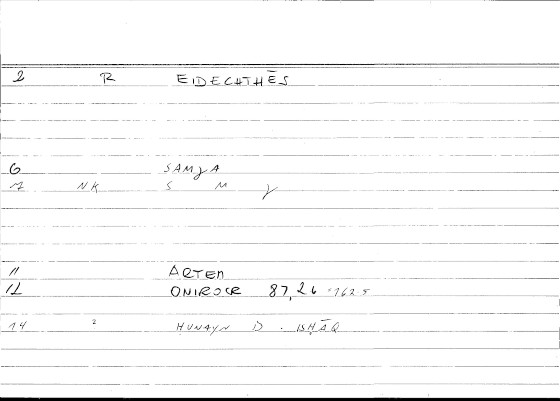 2 R EIDECHTHĒS
6 SAMJA
12 NK S M J
11 ARTEM
12 ONIROCR 87,26
14 ² ḤUNAYN B. ISḤĀQ